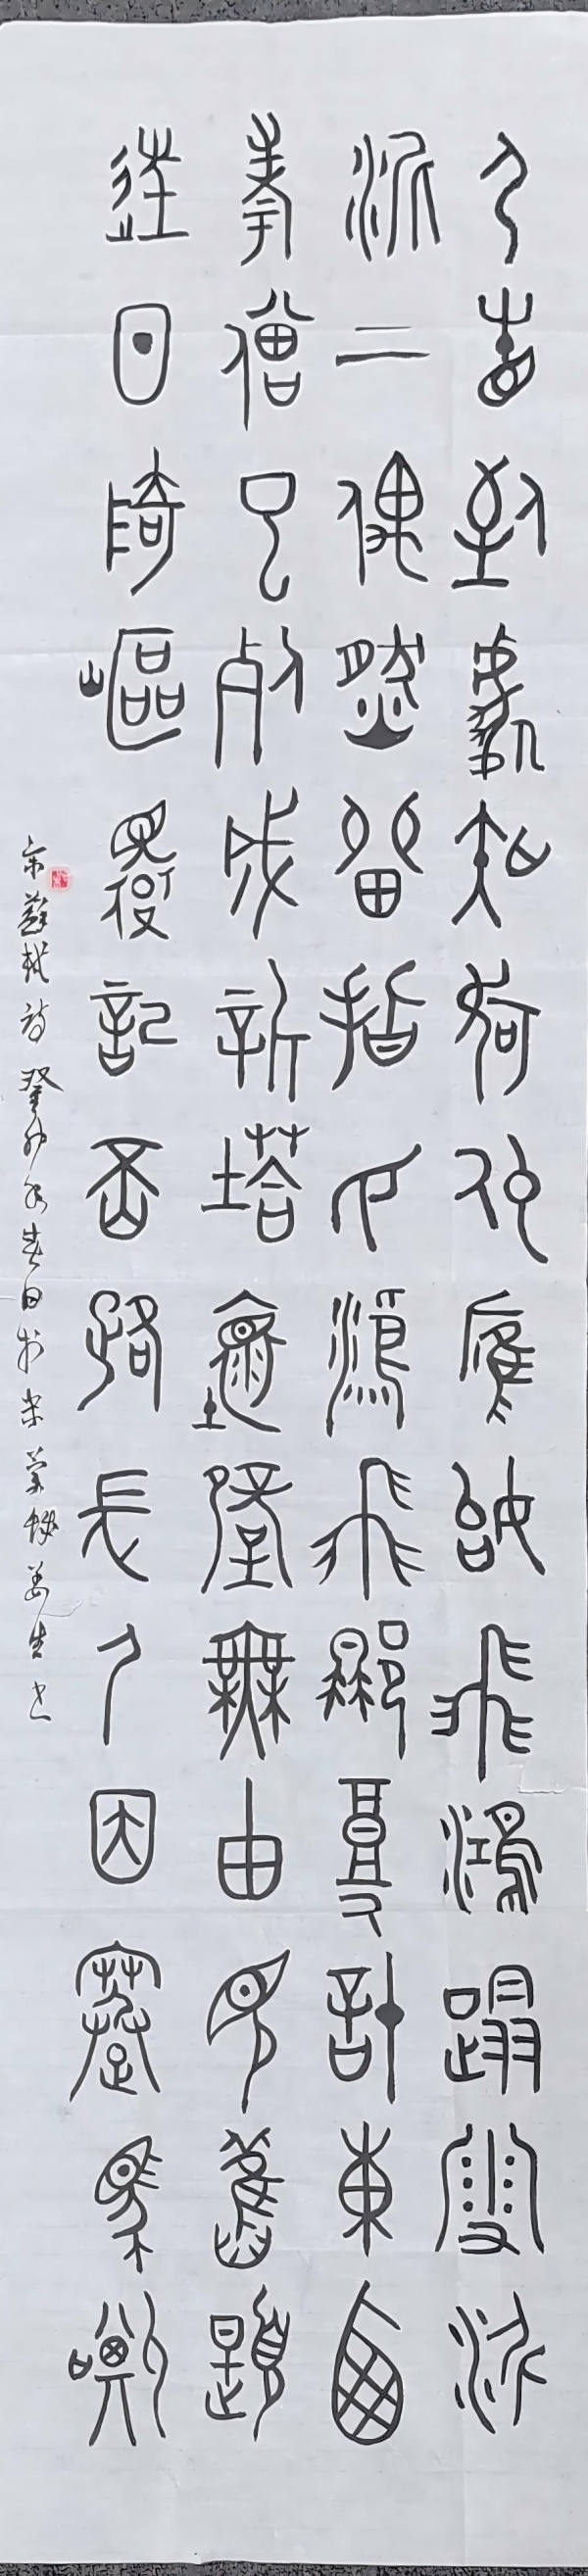 人生到處知何似應似飛鴻蹋雪泥
泥上偶然留指爪鴻飛那復計東西
老僧已死成新塔壞壁無由見舊題
往日崎嶇還記否路長人困蹇驢嘶
宋蘇軾詩癸卯年春日於